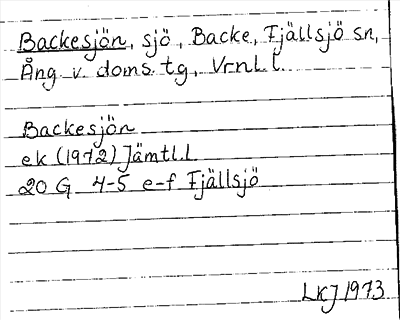 Backesjön, sjö, Backe, Fjällsjö sn,
Ång. v. doms. tg., Vrnl. l.
Backesjön
ek (1972) Jämtl. l
20 G 4-5 e-f Fjällsjö
LKJ 1973